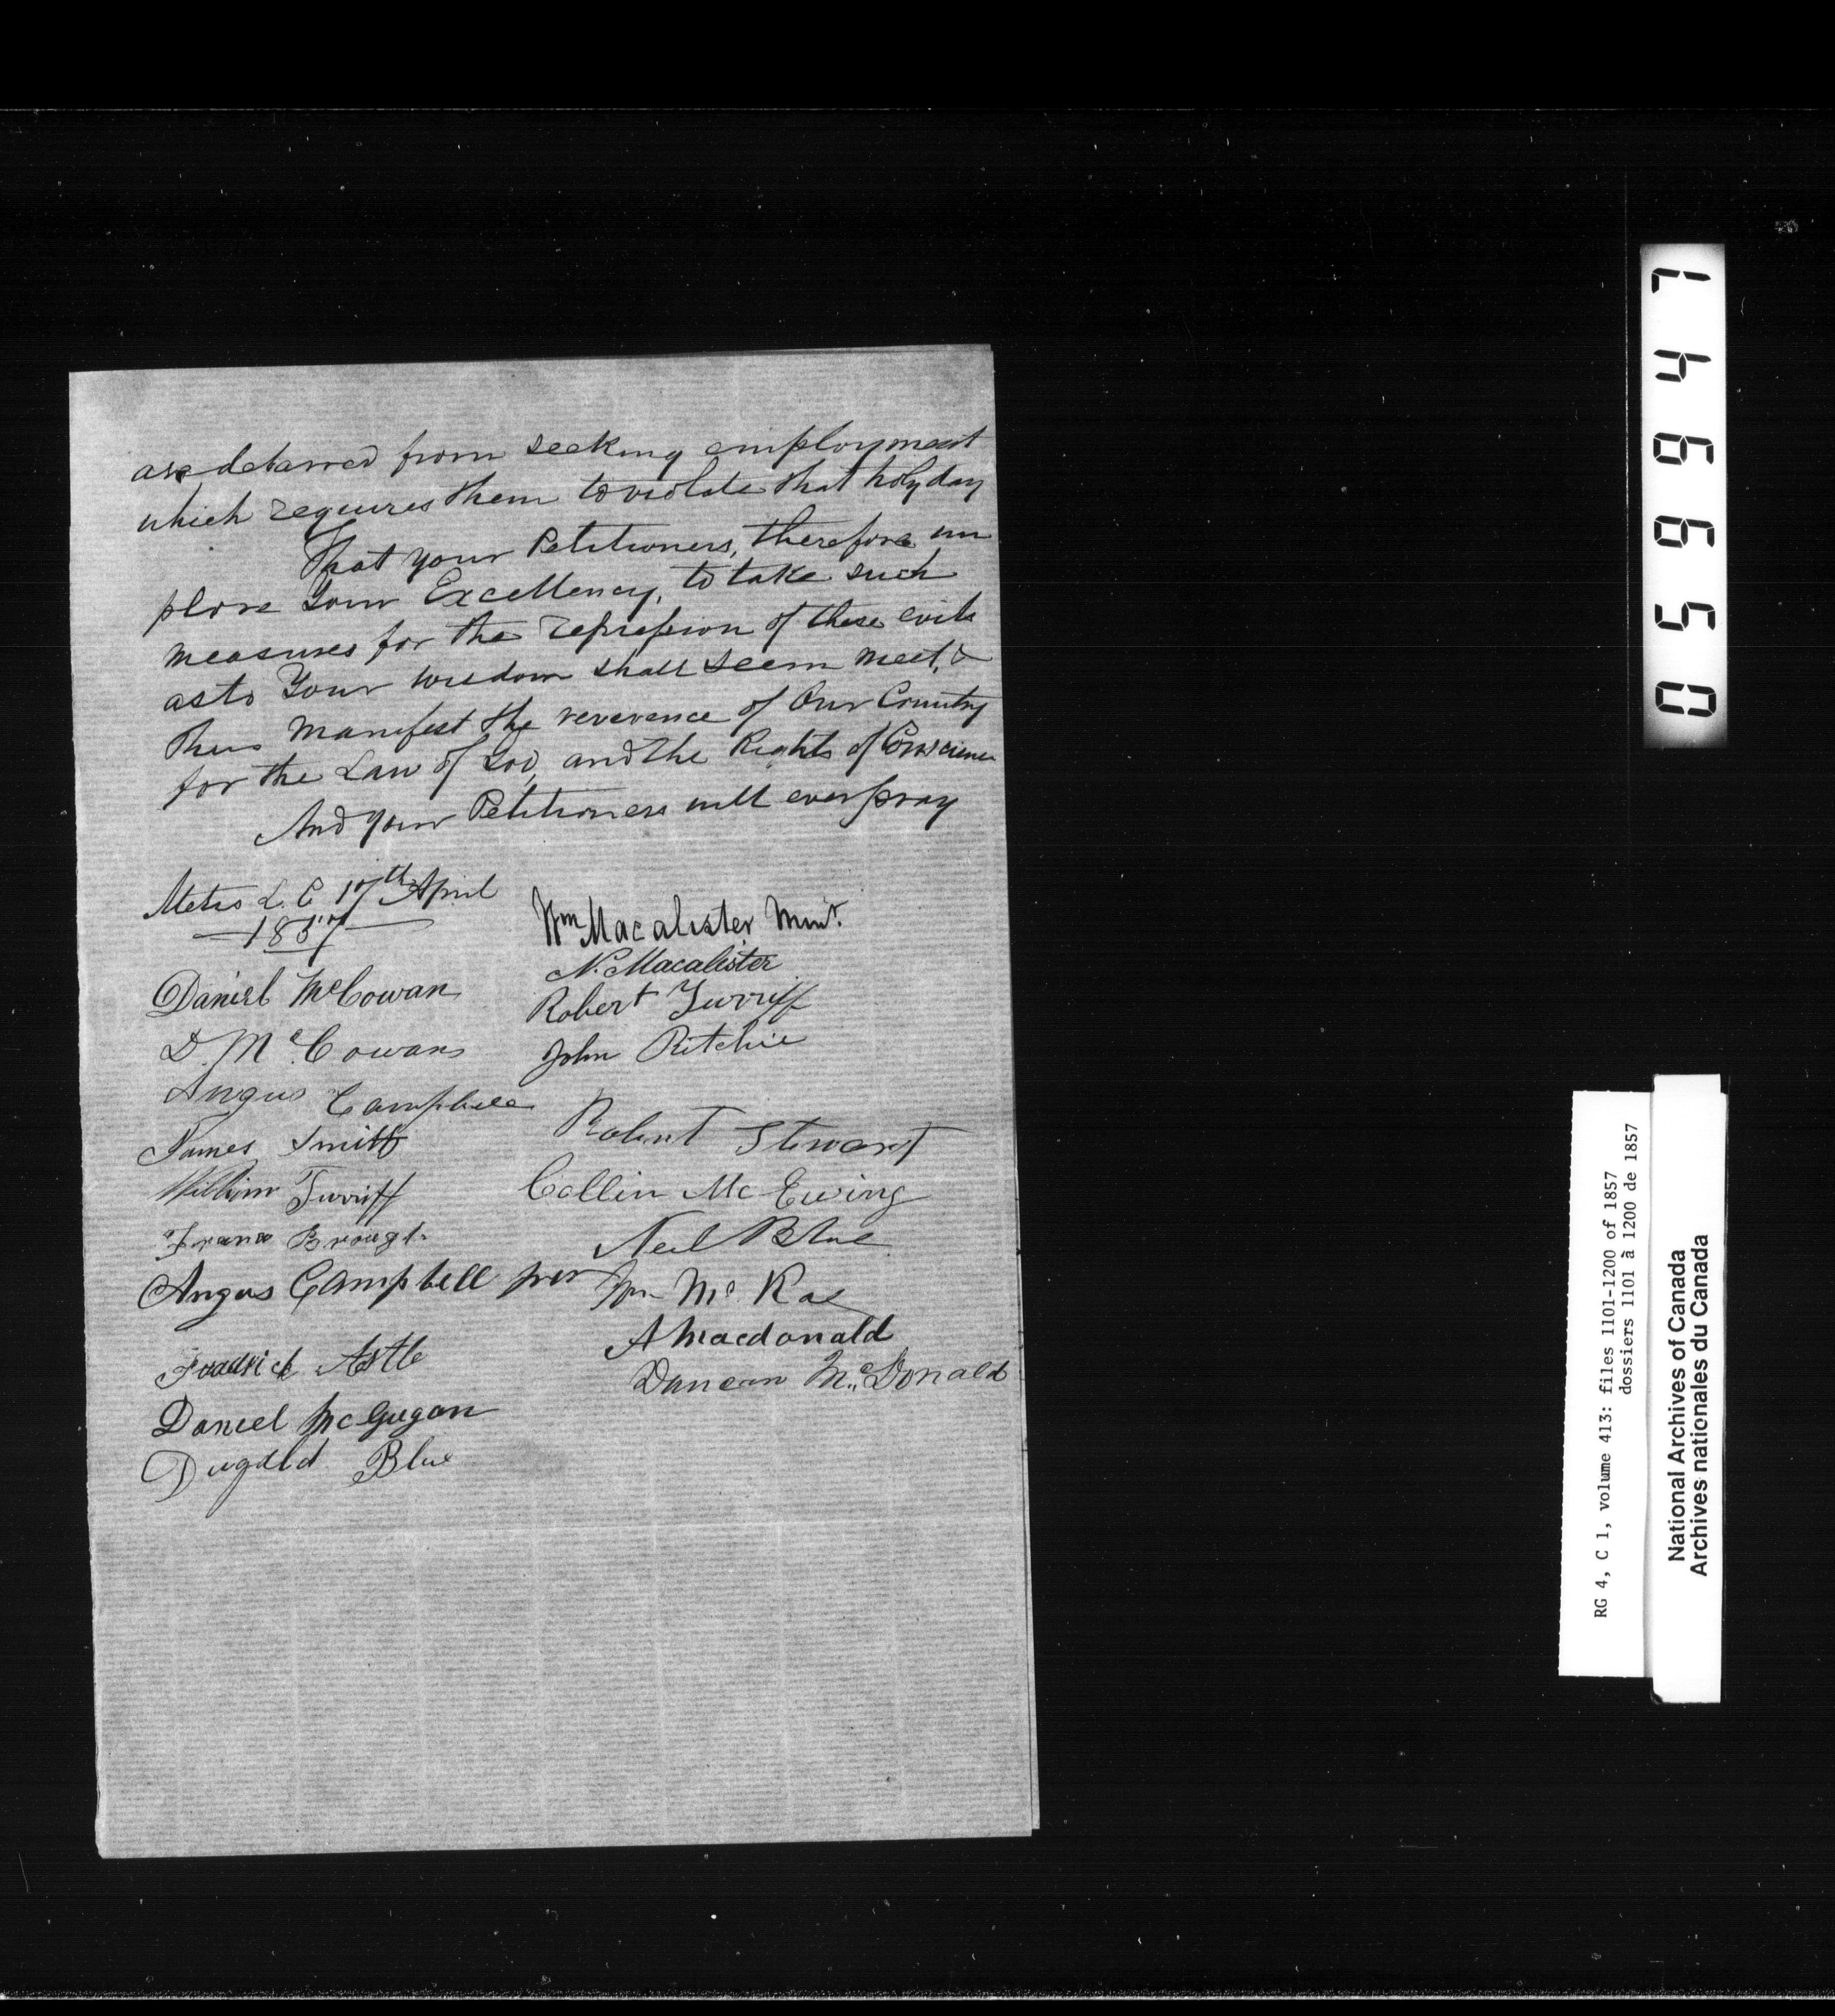 are debarred from seeking employment
which requires them to violate that holy day
That your Petitioners, therefore im
plore Your Excellency, to take such
measures for the repression of these evils
as to Your wisdom shall seem meet, &
thus manifest the reverence of Our Country
for the Law of God, and the Rights of Conscience
And your Petitioners will ever pray
Metis L. C 17th April
1857
Wm Macalister Minr.
N. Macalister
Robert Turriff
John Ritchie
Robert Stewart
Collin Mc Ewing
Neil Blue
Wm Mc Rae
A Macdonald
Duncan Mc Donald
Daniel McGowan
D. Mc Cowan
Angus Campbell
James Smith
William Turriff
Brough
Angus Campbell
Astle
Daniel McGugan
Dugald Blue
059947
RG 4, C 1, volume 413: files 1101-1200 of 1857
dossiers 1101 à 1200 de 1857
National Archives of Canada
Archives nationales du Canada